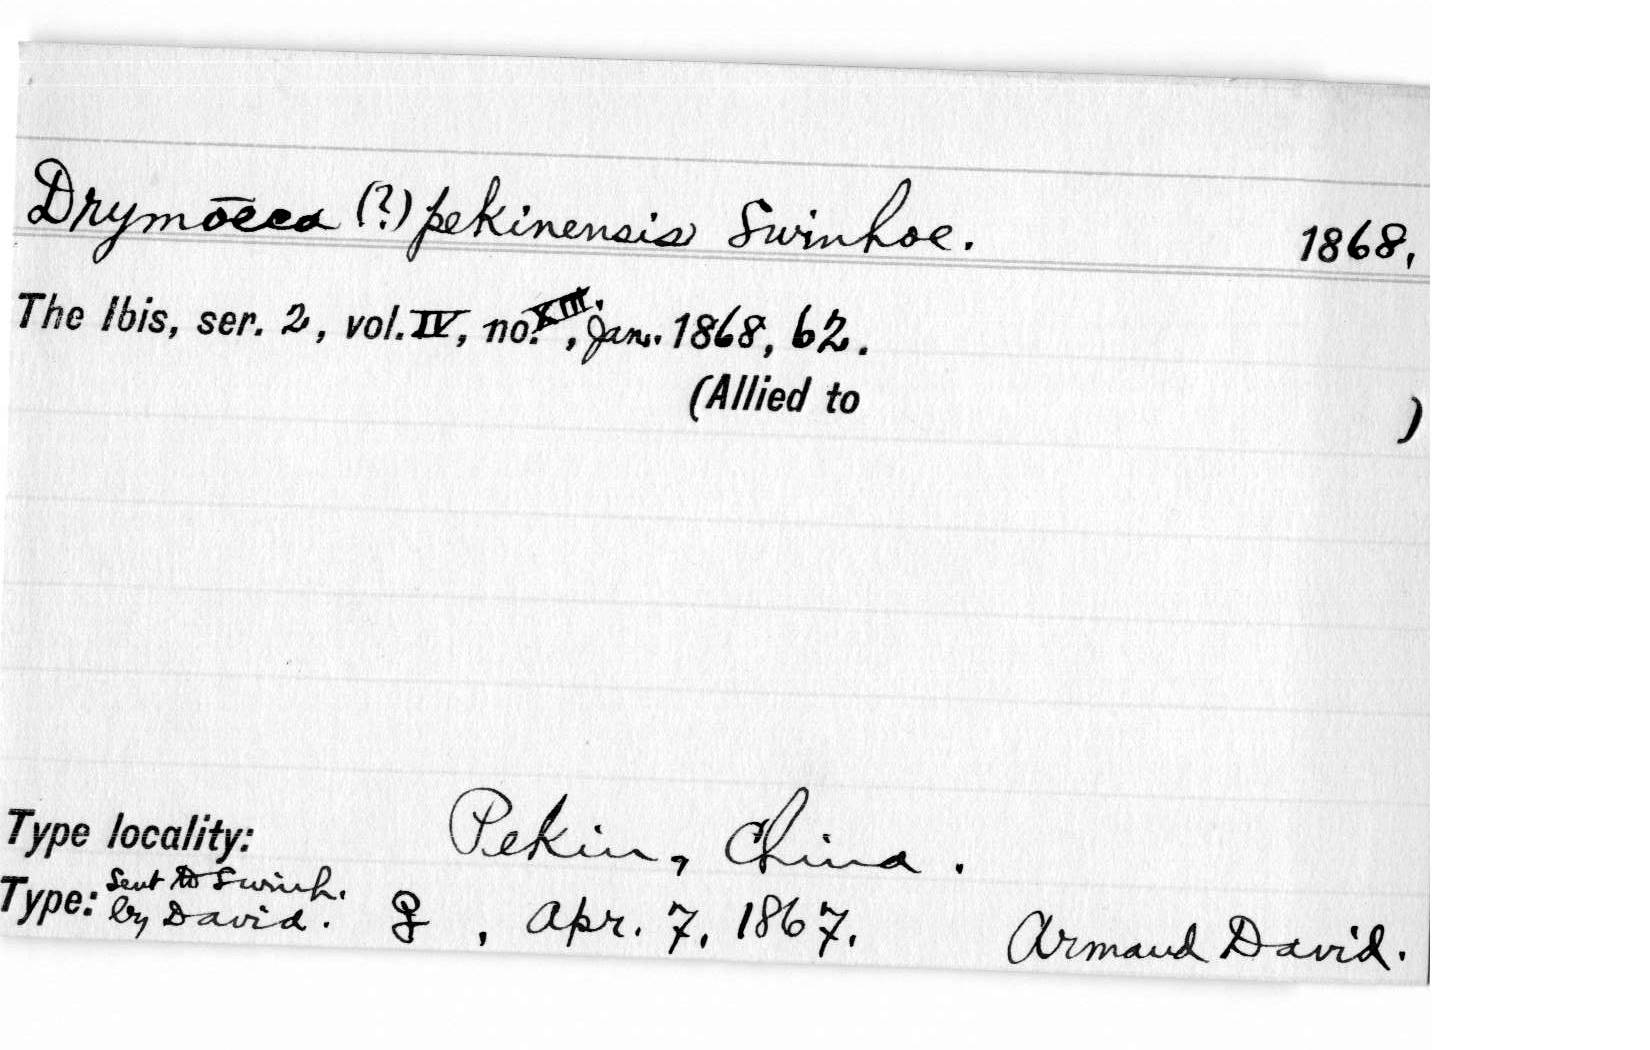 Drymōeca (?) pekinensis Swinhoe. 1868,
The Ibis, ser. 2, vol. IV, no. XIII., Jan. 1868, 62.
(Allied to )
Type locality: Pekin, China.
Type: Sent to Swinh. by David. ♀, Apr. 7, 1867. Armand David.